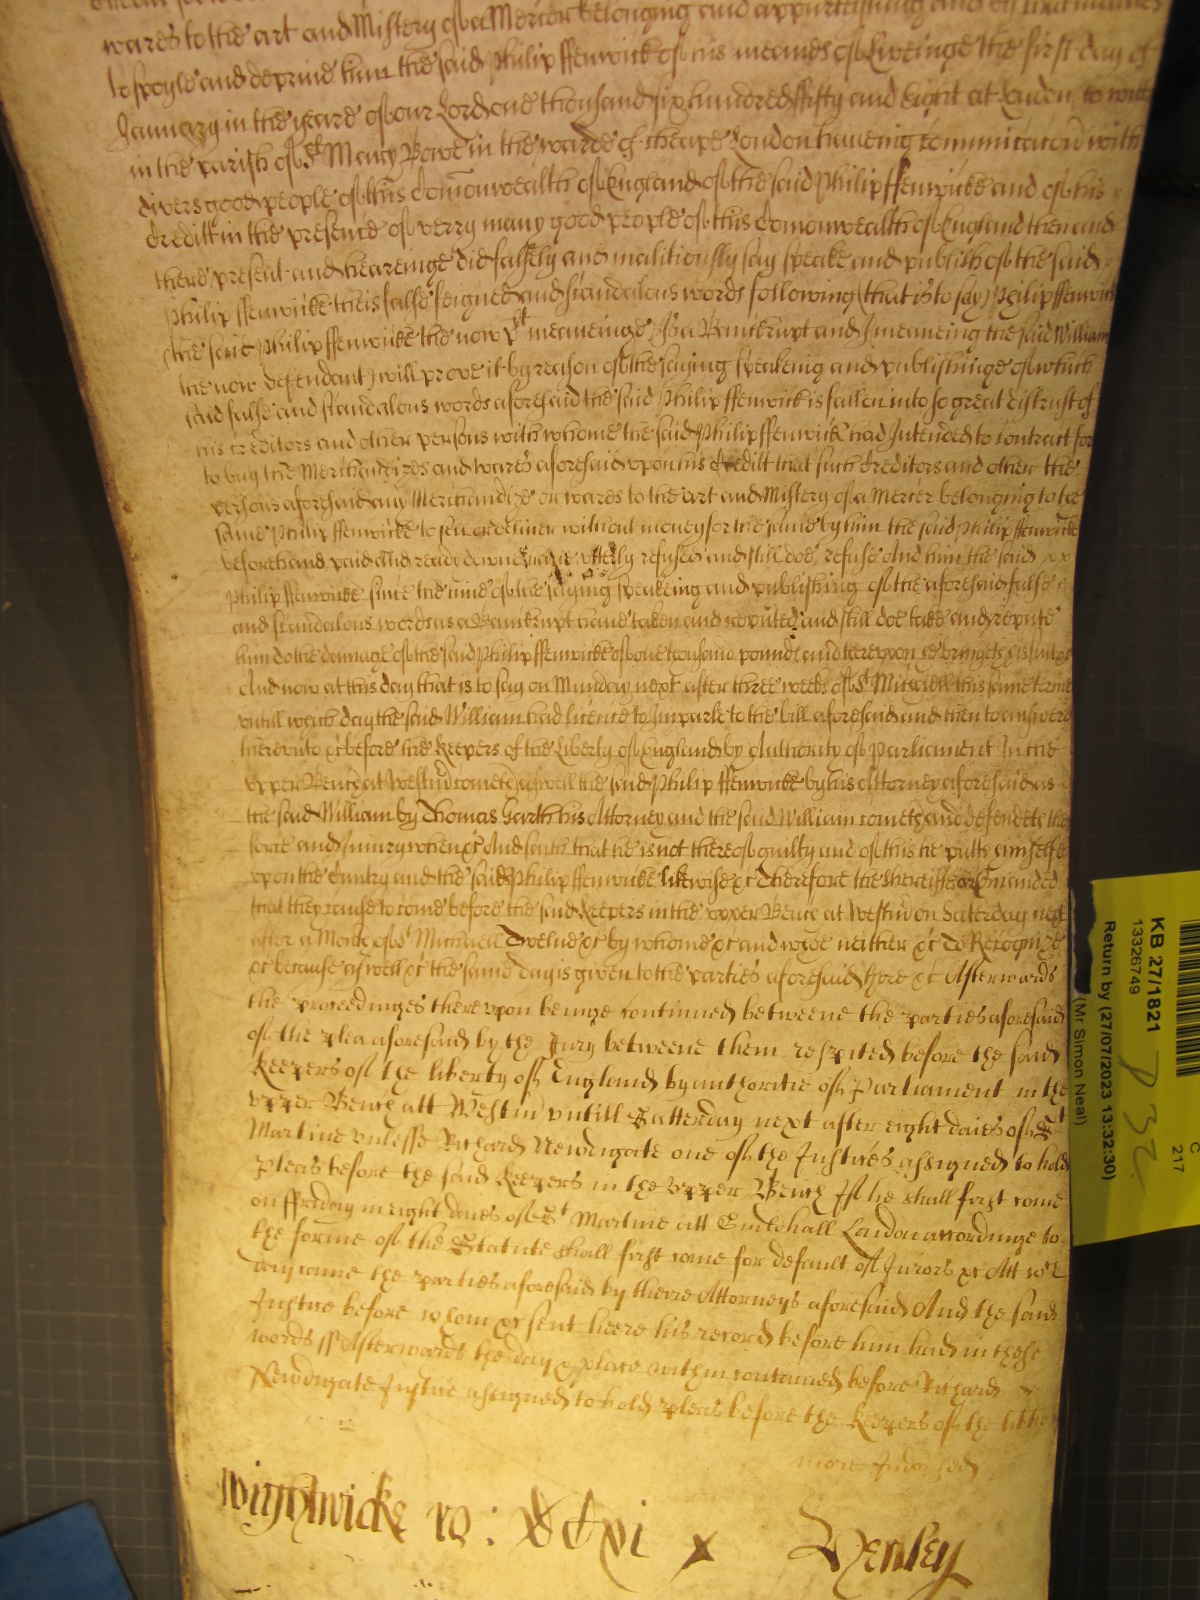 wares to the art and Mistery of a Mercer belonging and appurteining and by that meanes
to spoyle and deprive him the said Philip ffenwicke of his meanes of liveinge the first day of
January in the yeare of our Lord one thousand six hundred ffifty and Eight at London to witt
in the parish of St Mary Bowe in the warde of Cheape London haveing Communicacon with
divers good people of this Comonwealth of England of the said Philip ffenwicke and of his
Creditt in the presence of verry many good people of this Comonwealth of England then and
there present and heareinge did falsely and malitiously say speake and publish of the said
Philip ffenwicke theis false feigned and scandalous words following (that is to say) Philip ffenwicke
(the said Philip ffenwicke the now plt meaneinge) is a Banckrupt and I meaneing the said William
the now defendant) will prove it by reason of the saying speakeing and publishinge of which
said false and scandalous words aforesaid the said Philip ffenwick is fallen into so great distrust of
his creditors and other persons with whome the said Philip ffenwicke had Intended to contract for
to buy the Merchandizes and wares aforesaid upon his Creditt that such Creditors and other the
persons aforesaid any Merchandize or wares to the art and Mistery of a Mercer belonging to the
same Philip ffenwicke to sell or deliver without money for the same by him the said Philip ffenwicke
beforehand paid and ready downe have utterly refused and still doe refuse And him the said
Philip ffenwicke since the time of the saying speakeing and publishing of the aforesaid false
and scandalous words as a Banckrupt have taken and reputed and still doe take and repute
him to the damage of the said Philip ffenwicke of one thousand pounds and thereupon he bringeth his suite &c
And now at this day that is to say on Munday next after three weeks of St Michaell this same terme
untill which day the said William had licence to Imparle to the bill aforesaid and then to answere
thereunto &c before the Keepers of the Liberty of England by Authority of Parliament In the
upper Bench at Westmr cometh aswell the said Philip ffenwicke by his Attorney aforesaid as
the said William by Thomas Garth his Attorney and the said William cometh and defendeth the
force and Iniury when &c And saith that he is not thereof guilty and of this he putts himselfe
upon the Cuntry and the said Philip ffenwicke likewise &c Therefore the sheriffs are Comanded
that they cause to come before the said Keepers in the upper Bench at Westmr on Saturday next
after a Month of St Michaell Twelve &c by whome &c and whoe neither &c To Recognize
&c because aswell &c the same day is given to the parties aforesaid there &c Afterwards
the proceedinges thereupon beinge continued betweene the parties aforesaid
of the plea aforesaid by the Jury betweene them respited before the said
Keepers of the liberty of England by authoritie of Parliament in the
upper Bench att Westmr untill Satterday next after eight daies of St
Martine unlesse Richard Newdigate one of the Justices assigned to hold
pleas before the said Keepers in the upper Bench If he shall first come
on ffriday in eight daies of St Martine att Guildhall London accordinge to
the forme of the Statute shall first come for default of Jurors &c Att wch
day came the parties aforesaid by theire Attorneys aforesaid And the said
Justice before whom &c sent heere his record before him had in these
words ss Afterwards the day & place within contained before Richard
Newdigate Justice assigned to hold pleas before the Keepers of the libertie
more Indorsed
Wightwicke ro:
Henley
KB 27/1821
13326749
Return by (27/07/2023 13:32:30)
(Mr Simon Neal)
C
217